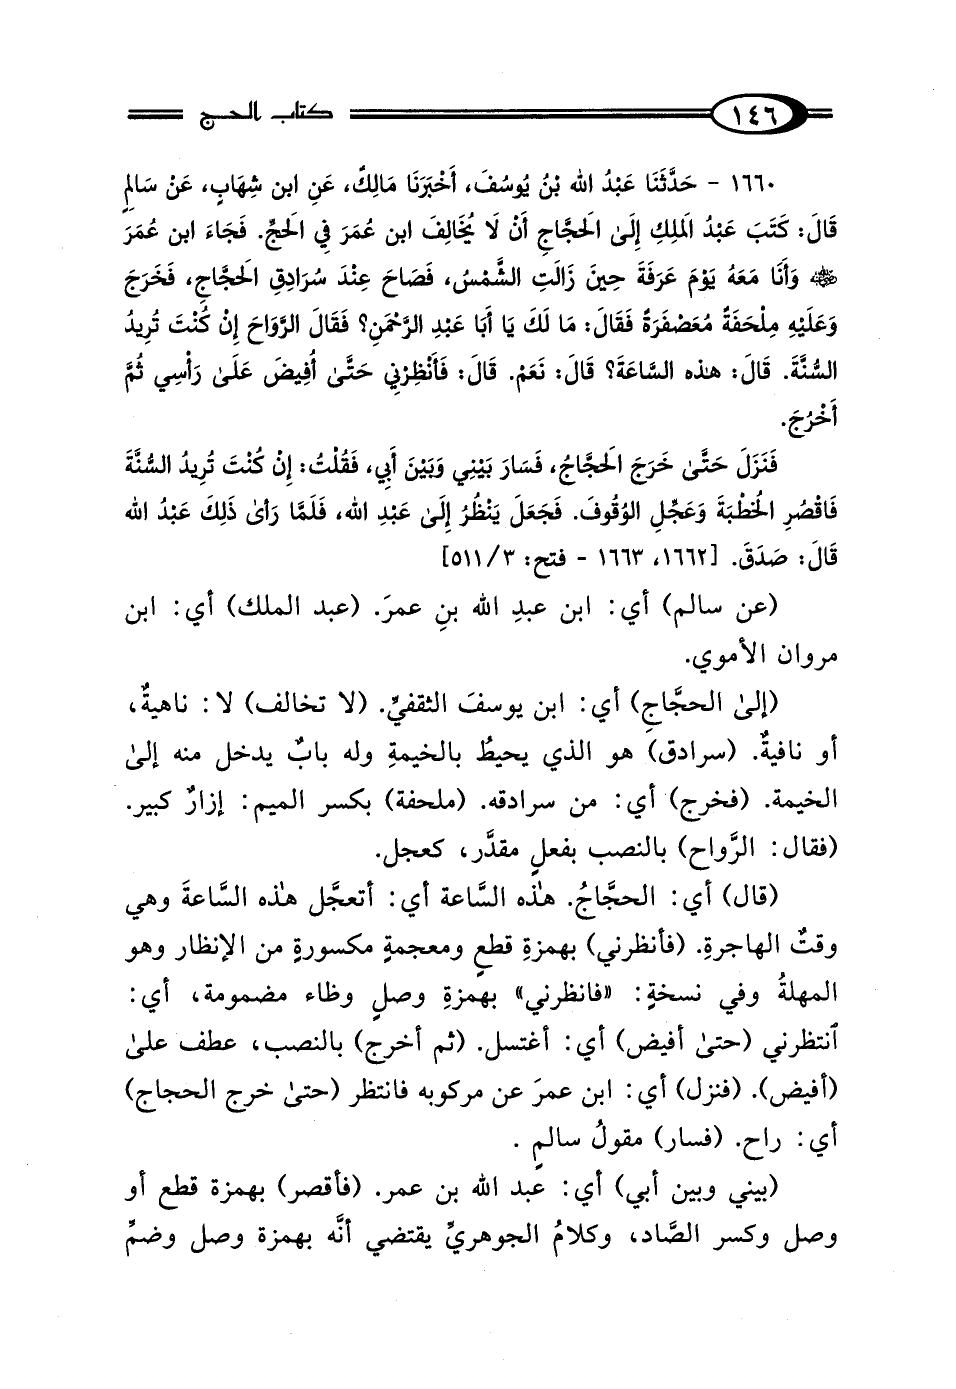 ١٤٦ كتاب الحج
١٦٦٠ - حَدَّثَنَا عَبْدُ الله بْنُ يُوسُفَ، أَخْبَرَنَا مَالِكٌ، عَنِ ابن شِهَابٍ، عَنْ سَالِمٍ
قَالَ: كَتَبَ عَبْدُ المَلِكِ إِلَىٰ الحَجَّاجِ أَنْ لَا يُخَالِفَ ابن عُمَرَ فِي الحَجِّ. فَجَاءَ ابن عُمَرَ
وَأَنَا مَعَهُ يَوْمَ عَرَفَةَ حِينَ زَالَتِ الشَّمْسُ، فَصَاحَ عِنْدَ سُرَادِقِ الحَجَّاجِ، فَخَرَجَ
وَعَلَيْهِ مِلْحَفَةٌ مُعَصْفَرَةٌ فَقَالَ: مَا لَكَ يَا أَبَا عَبْدِ الرَّحْمَنِ؟ فَقَالَ الرَّوَاحَ إِنْ كُنْتَ تُرِيدُ
السُّنَّةَ. قَالَ: هذه السَّاعَةَ؟ قَالَ: نَعَمْ. قَالَ: فَأَنْظِرْنِي حَتَّىٰ أُفِيضَ عَلَىٰ رَأْسِي ثُمَّ
أَخْرُجَ.
فَنَزَلَ حَتَّىٰ خَرَجَ الحَجَّاجُ، فَسَارَ بَيْنِي وَبَيْنَ أَبِي، فَقُلْتُ: إِنْ كُنْتَ تُرِيدُ السُّنَّةَ
فَاقْصُرِ الخُطْبَةَ وَعَجِّلِ الوُقُوفَ. فَجَعَلَ يَنْظُرُ إِلَىٰ عَبْدِ الله، فَلَمَّا رَأىٰ ذَلِكَ عَبْدُ الله
قَالَ: صَدَقَ. [١٦٦٢، ١٦٦٣ - فتح: ٣/ ٥١١]
(عن سالم) أي: ابن عبدِ الله بنِ عمرَ. (عبد الملك) أي: ابن
مروان الأموي.
(إلىٰ الحجَّاجِ) أي: ابن يوسفَ الثقفيِّ. (لا تخالف) لا: ناهيةٌ،
أو نافيةٌ. (سرادق) هو الذي يحيطُ بالخيمةِ وله بابٌ يدخل منه إلىٰ
الخيمة. (فخرج) أي: من سرادقه. (ملحفة) بكسر الميم: إزارٌ كبير.
(فقال: الرَّواح) بالنصب بفعلٍ مقدَّر، كعجل.
(قال) أي: الحجاجُ. هذه السَّاعة أي: أتعجَّل هذه السَّاعةَ وهي
وقتٌ الهاجرةِ. (فأنظرني) بهمزةِ قطعٍ ومعجمةٍ مكسورةٍ من الإنظار وهو
المهلةُ وفي نسخةٍ: «فانظرني» بهمزةِ وصلٍ وظاء مضمومة، أي:
ٱنتظرني (حتىٰ أفيض) أي: أغتسل. (ثم أخرج) بالنصب، عطف علىٰ
(أفيض). (فنزل) أي: ابن عمرَ عن مركوبه فانتظر (حتىٰ خرج الحجاج)
أي: راح. (فسار) مقولُ سالمٍ .
(بيني وبين أبي) أي: عبد الله بن عمر. (فأقصر) بهمزة قطع أو
وصل وكسر الصَّاد، وكلامُ الجوهريِّ يقتضي أنَّه بهمزة وصل وضمِّ